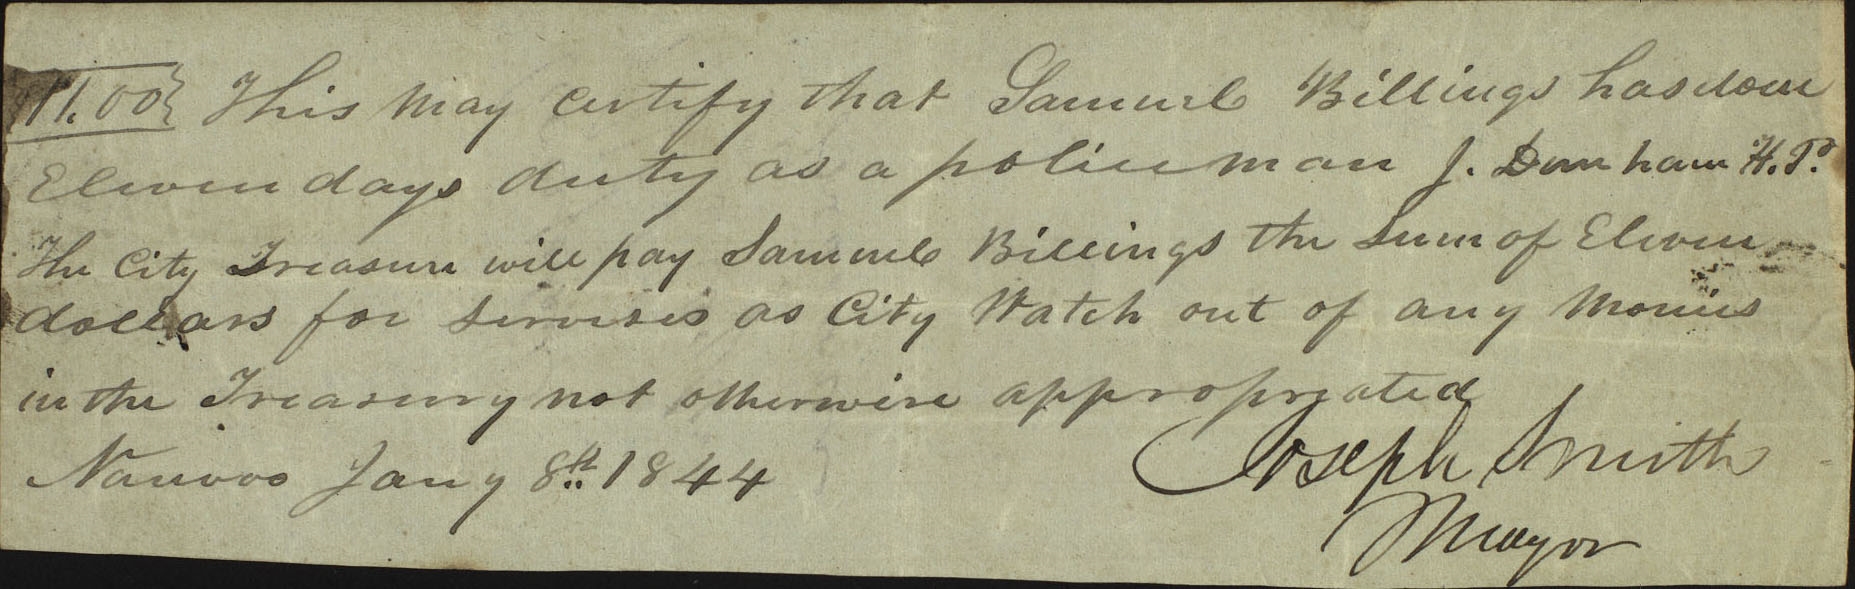 11.00} This may certify that Samuel Billings has done
Eleven days duty as a policeman J. Dunham H.P.
The City Treasure will pay Samuel Billings the Sum of Eleven
dollars for servises as City Watch out of any Monies
in the Treasury not otherwise appropriated
Nauvoo Jany 8th 1844
Joseph Smith
Mayor